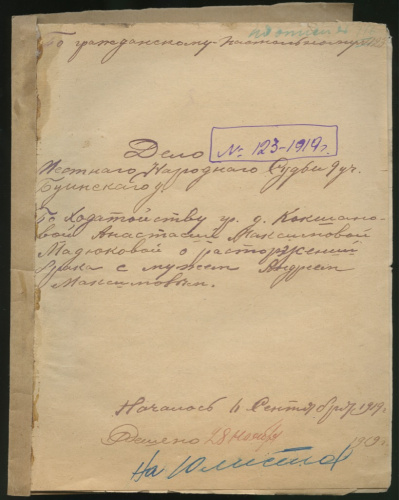 По гражданскому настольному
Дело № 123-1919г.
Местнаго Народнаго Судьи 9 уч.
Буинскаго у.
По Ходатайству гр. д. Кокшано-
вой Анастасии Максимовой
Мадюковой о расторжений
брака с мужем Андреем
Максимовым.
Началось 11 Сентября 1919г.
Решено 28 Ноября 1919г.
На 10 листах